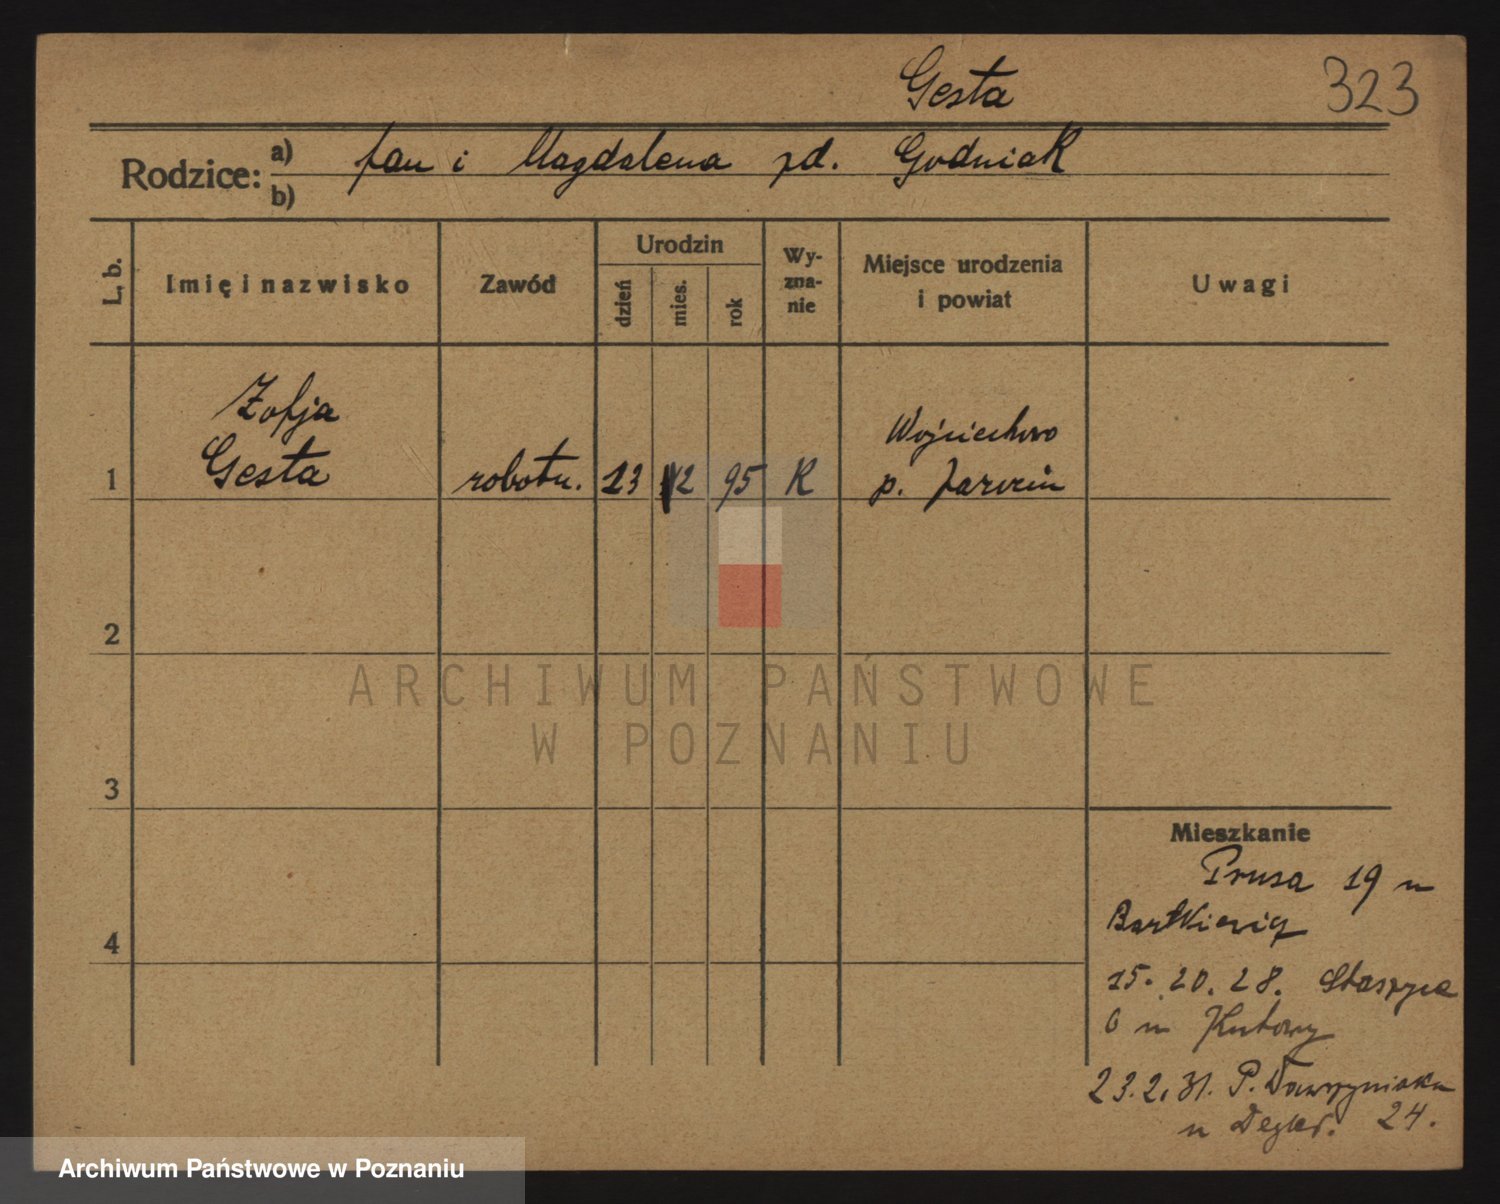 Gesta 323
Rodzice: a) Jan i Magdalena zd. Godniak
b)
L. b.
Imię i nazwisko
Zawód
Urodzin
dzień
mies.
rok
Wy-
zna-
nie
Miejsce urodzenia
i powiat
Uwagi
Zofja
Gesta
1
robotn. 13 12 95 K
Wojciechowo
p. Jarocin
2
3
4
Mieszkanie
Prusa 19 u
15. 20. 28. Staszyca
6 u
23.2.31. P.
u 24.
ARCHIWUM PAŃSTWOWE
W POZNANIU
Archiwum Państwowe w Poznaniu